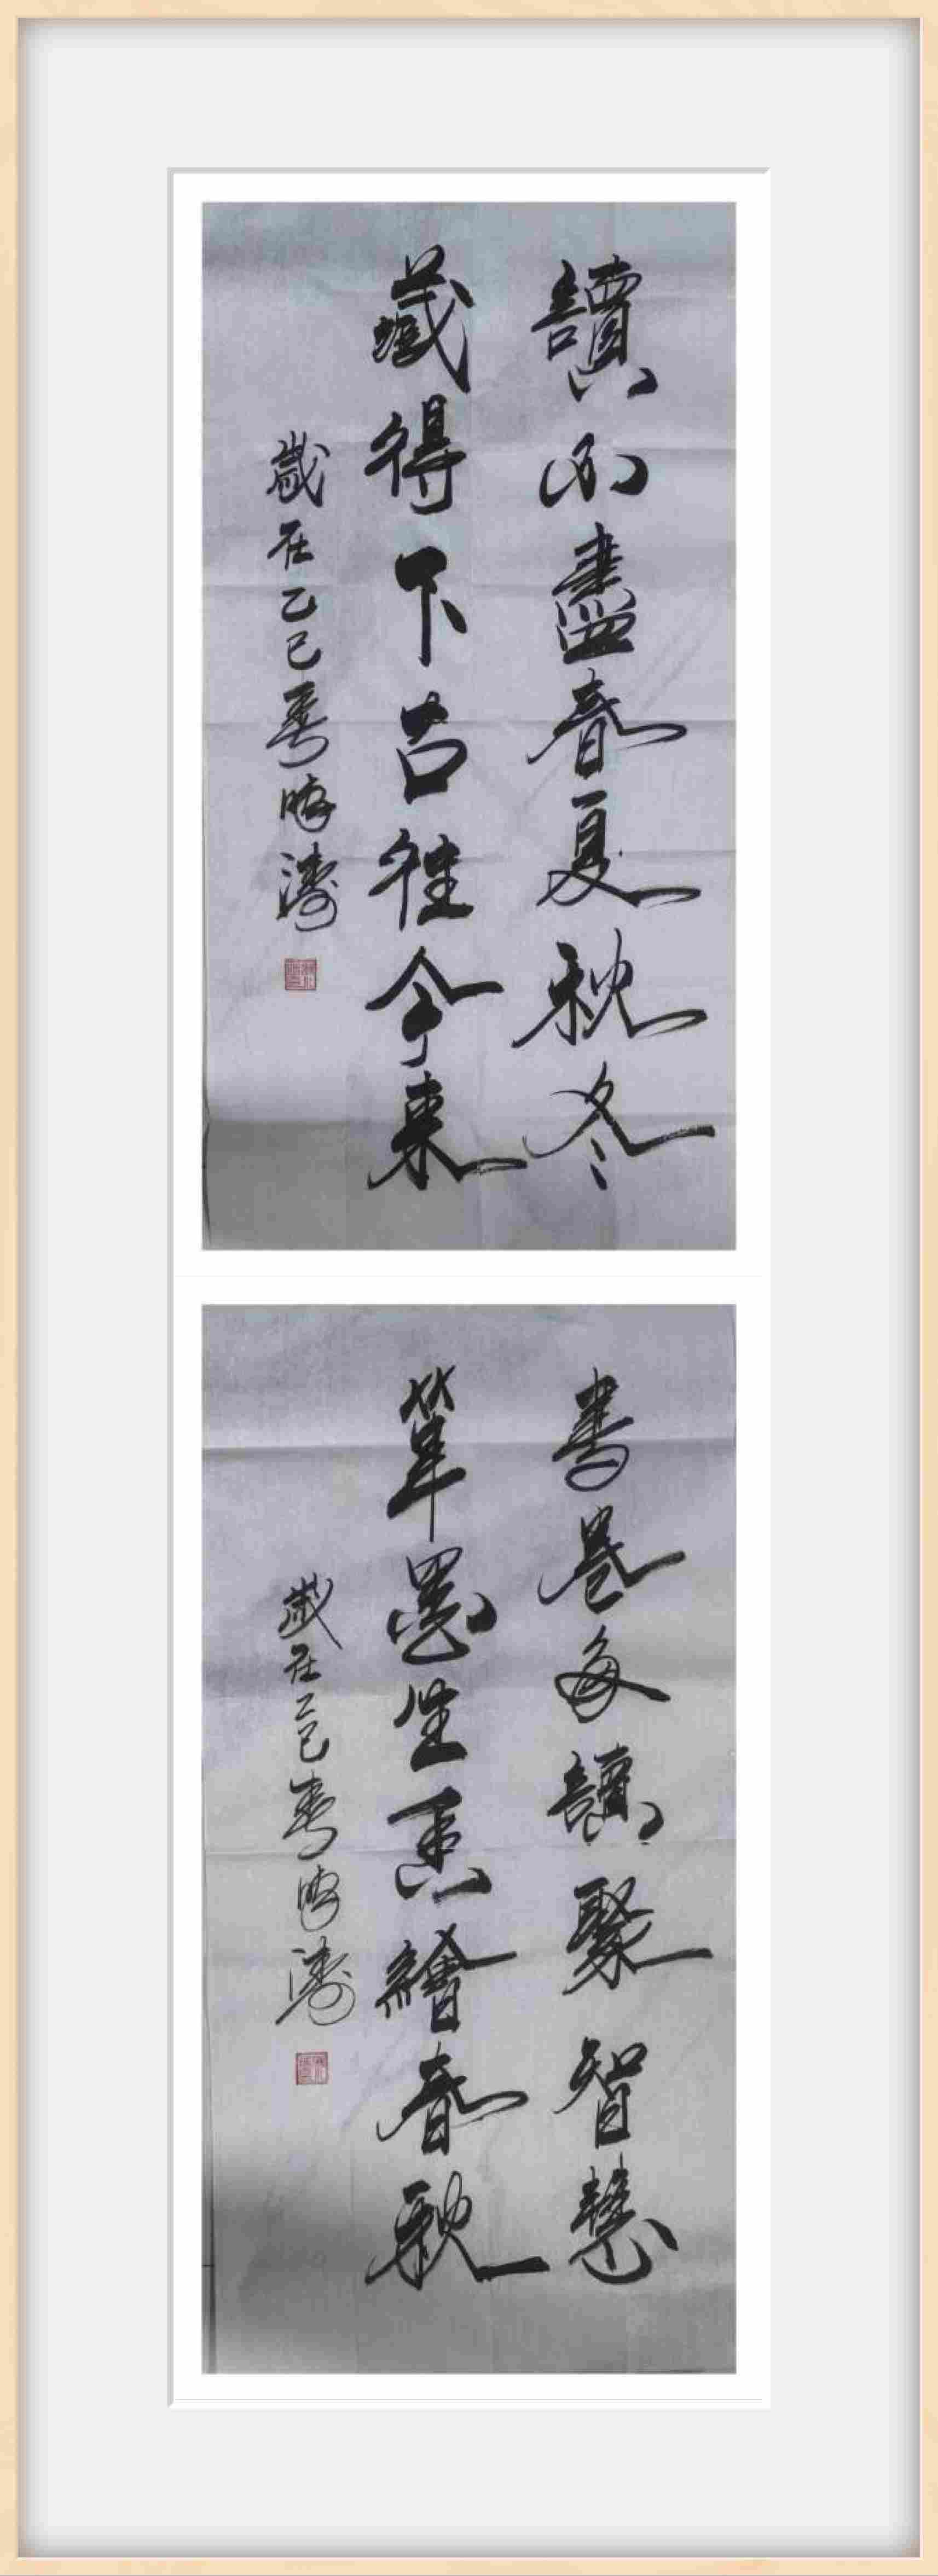 讀不盡春夏秋冬
藏得下古往今來
歲在乙巳春 曉濤
書卷每讀聚智慧
筆墨生香繪春秋
歲在乙巳春 曉濤